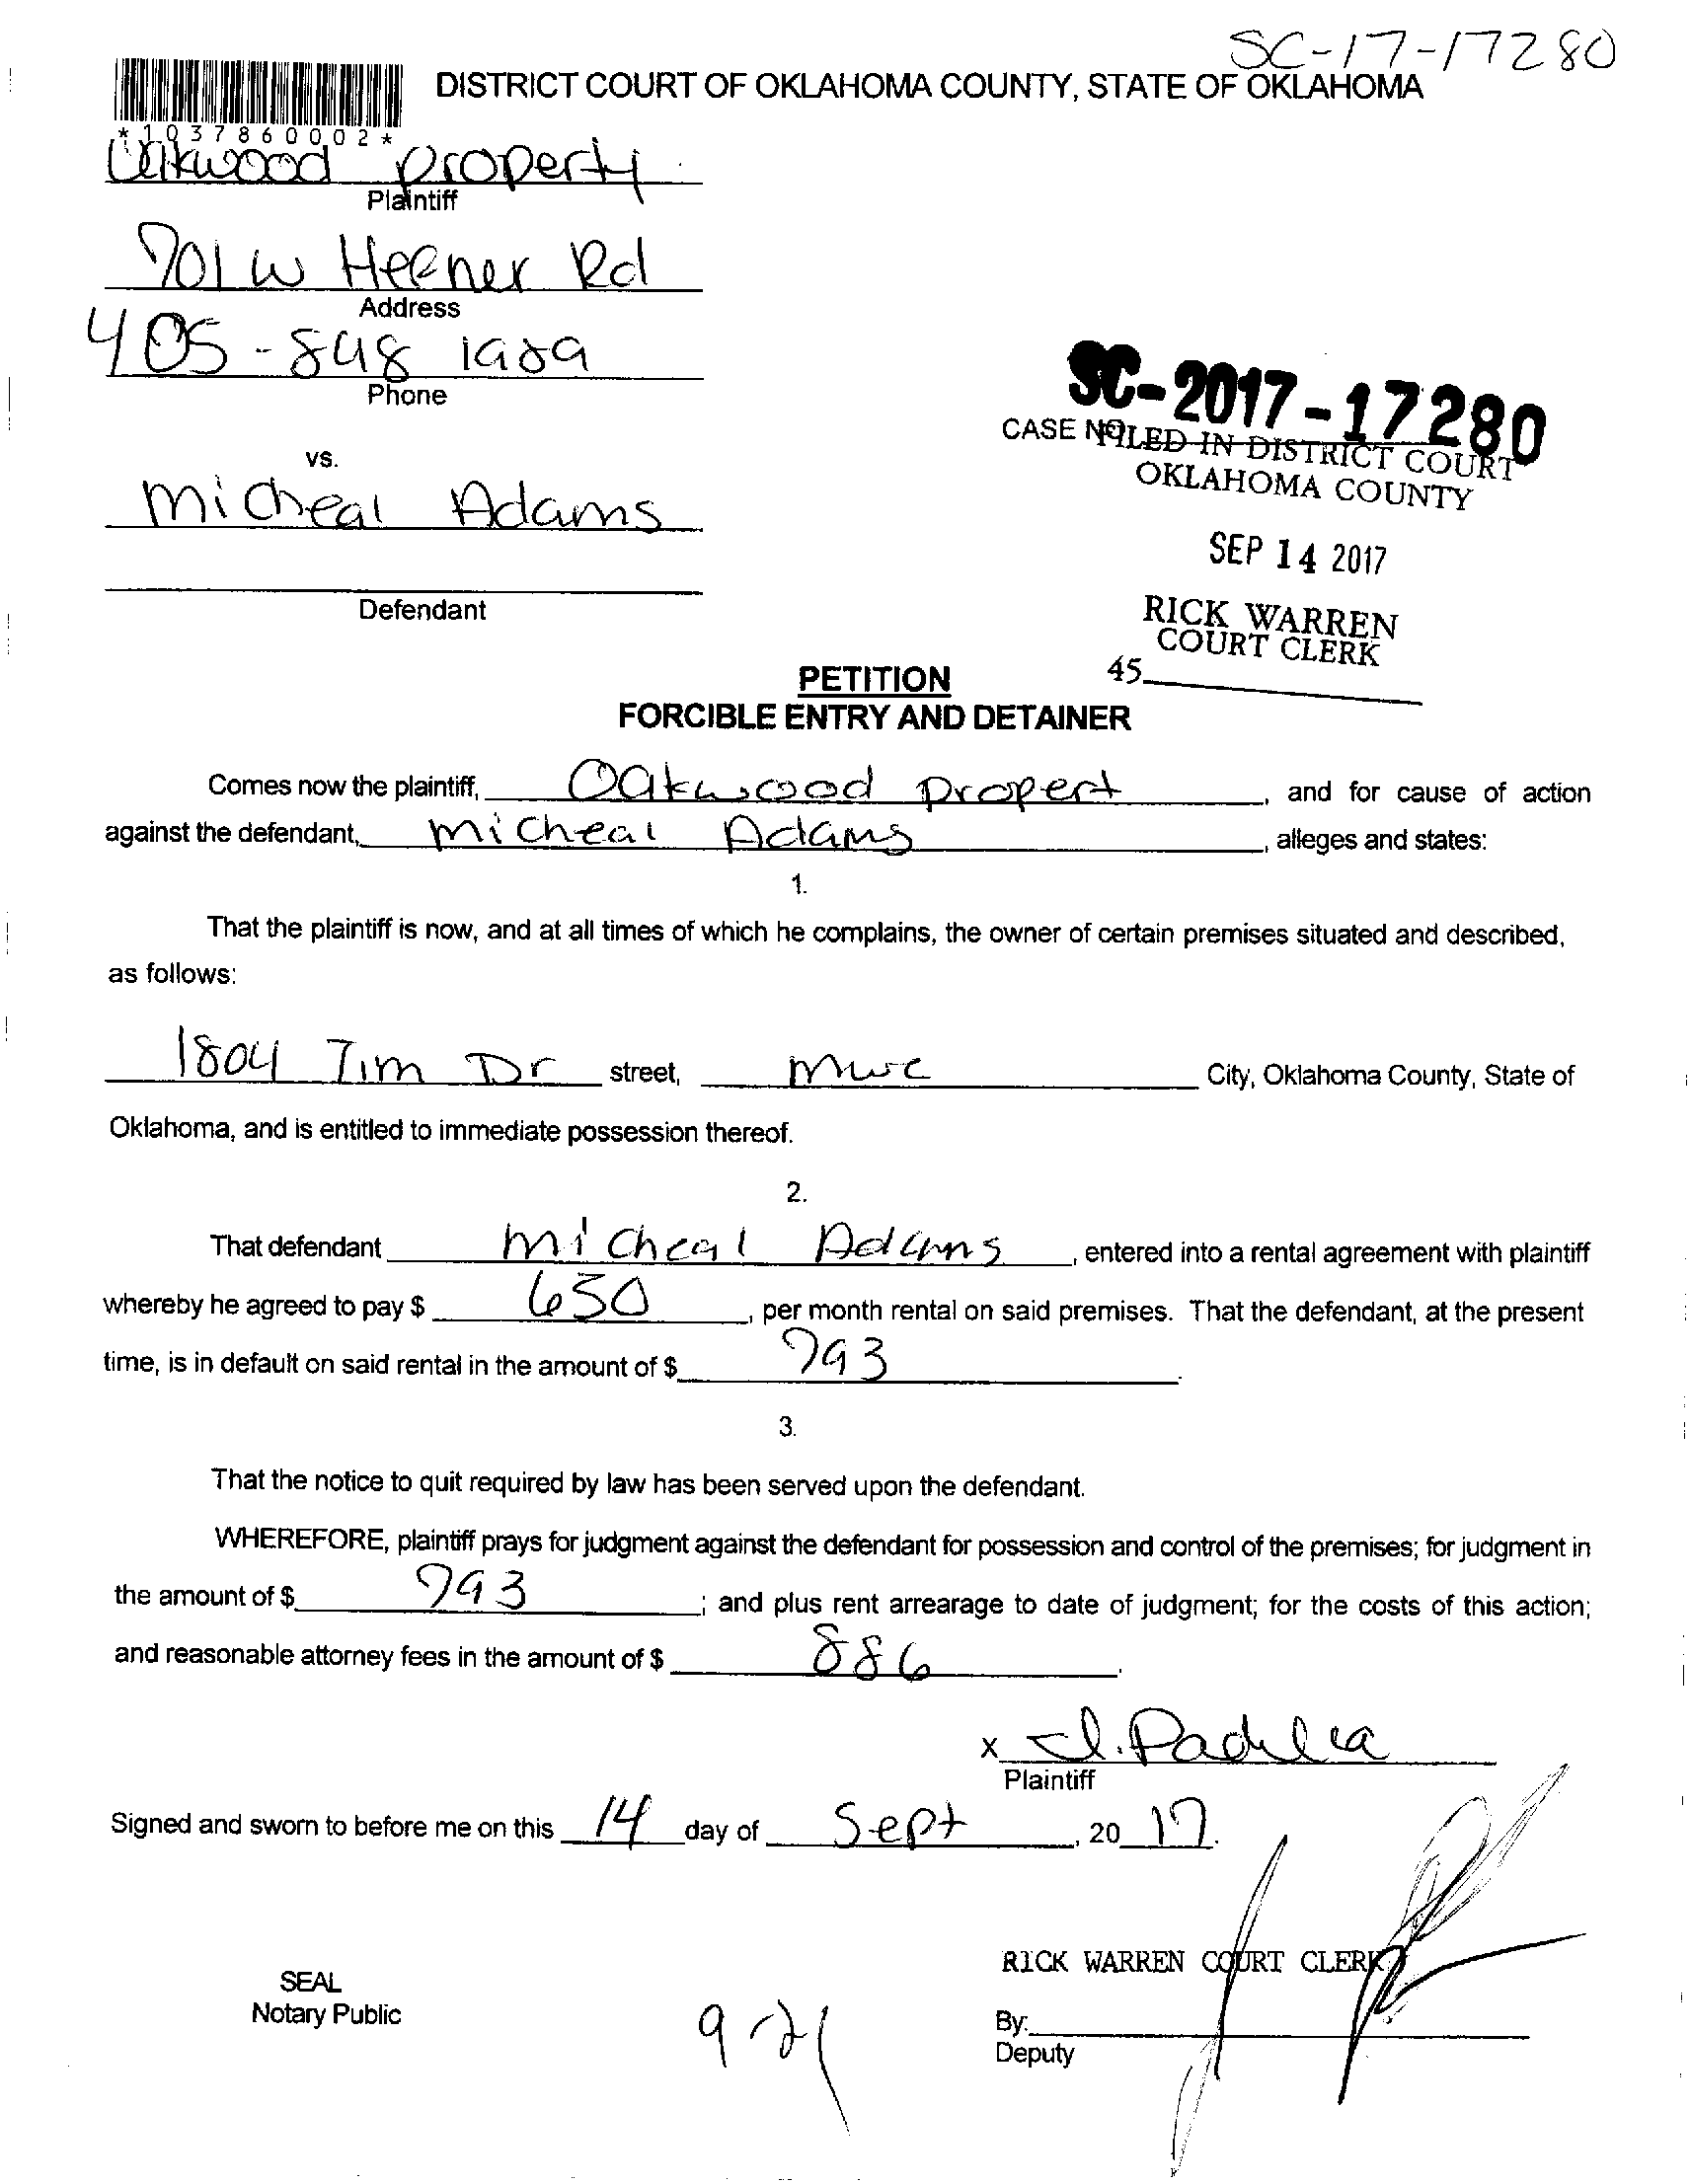 SC-17-17280
DISTRICT COURT OF OKLAHOMA COUNTY, STATE OF OKLAHOMA
*1037860002*
Oakwood Property
Plaintiff
701 W Heener Rd
Address
405-848 1989
Phone
SC-2017-17280
CASE NO
FILED IN DISTRICT COURT
OKLAHOMA COUNTY
vs.
Micheal Adams
SEP 14 2017
Defendant
RICK WARREN
COURT CLERK
45
PETITION
FORCIBLE ENTRY AND DETAINER
Comes now the plaintiff, Oakwood Propert, and for cause of action
against the defendant, Micheal Adams, alleges and states:
1.
That the plaintiff is now, and at all times of which he complains, the owner of certain premises situated and described,
as follows:
1804 Tim Dr street, MWC City, Oklahoma County, State of
Oklahoma, and is entitled to immediate possession thereof.
2.
That defendant Micheal Adams, entered into a rental agreement with plaintiff
whereby he agreed to pay $ 650, per month rental on said premises. That the defendant, at the present
time, is in default on said rental in the amount of $ 793.
3.
That the notice to quit required by law has been served upon the defendant.
WHEREFORE, plaintiff prays for judgment against the defendant for possession and control of the premises; for judgment in
the amount of $ 793; and plus rent arrearage to date of judgment; for the costs of this action;
and reasonable attorney fees in the amount of $ 886.
x J. Padilla
Plaintiff
Signed and sworn to before me on this 14 day of Sept, 2017.
RICK WARREN COURT CLERK
SEAL
Notary Public
9-21
By:
Deputy